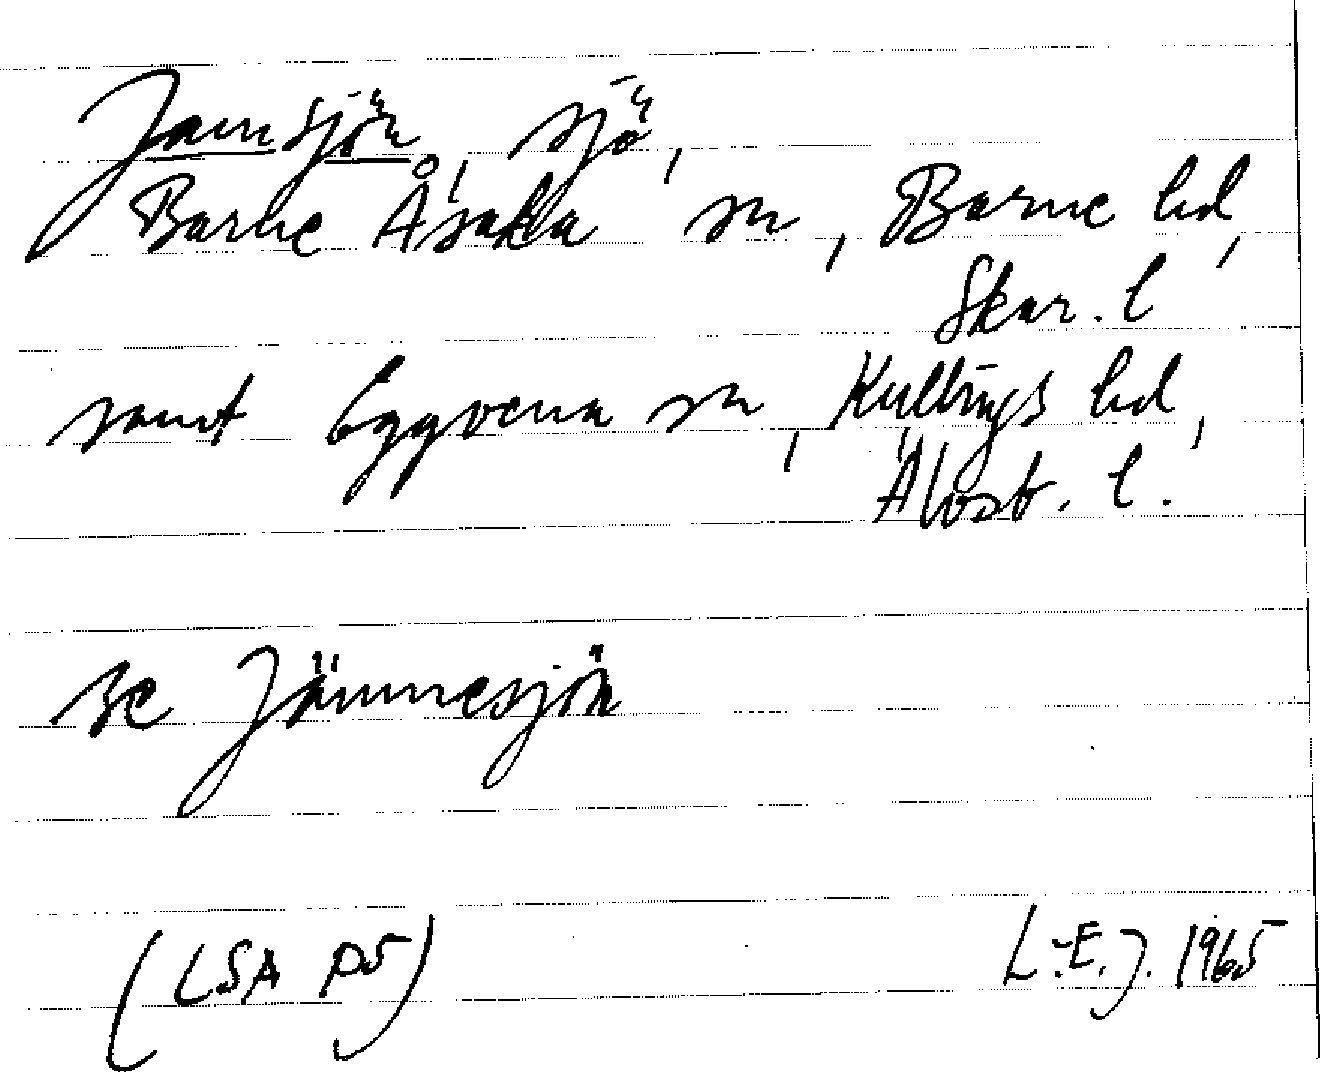 Jamsjön, sjö,
Barne Åsaka sn, Barne hd,
Skar. l
samt Eggvena sn, Kullings hd,
Älvsb. l.
se Jämnesjön
(LSA P5) L.-E. J. 1965